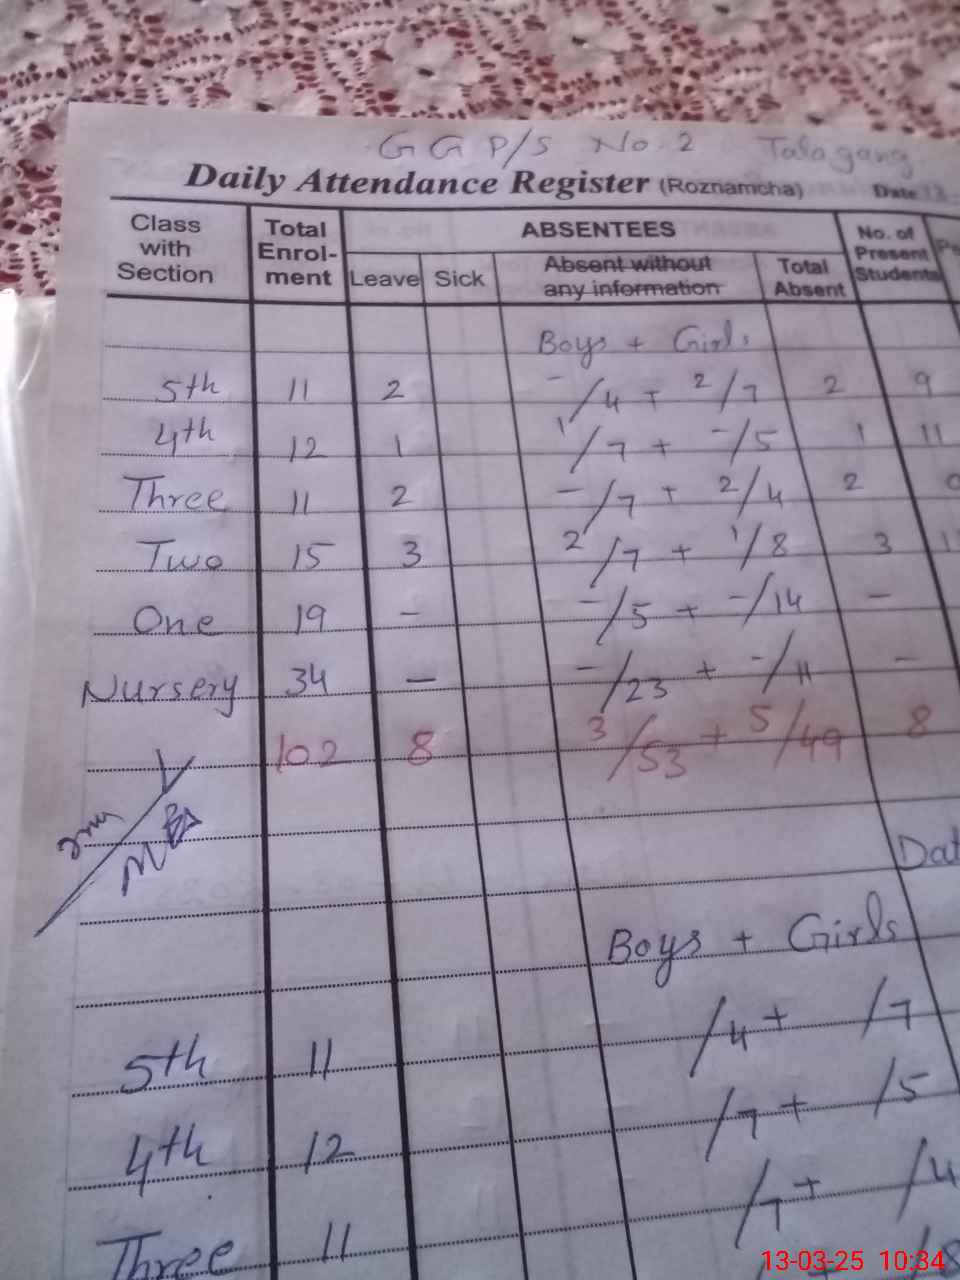 G G P/S No. 2 Talagang
Daily Attendance Register (Roznamcha) Date
Class with Section Total Enrol-ment ABSENTEES No. of Present Students
Leave Sick Absent without any information Total Absent
Boys + Girls
5th 11 2 -/4 + 2/7 2 9
4th 12 1 1/7 + -/5 1 11
Three 11 2 -/7 + 2/4 2
Two 15 3 2/7 + 1/8 3
One 19 - -/5 + -/14 -
Nursery 34 - -/23 + -/11 -
102 8 3/53 + 5/49 8
Dat
Boys + Girls
5th 11 /4 + /7
4th 12 /7 + /5
Three 11 /7 + /4
/8
13-03-25 10:34